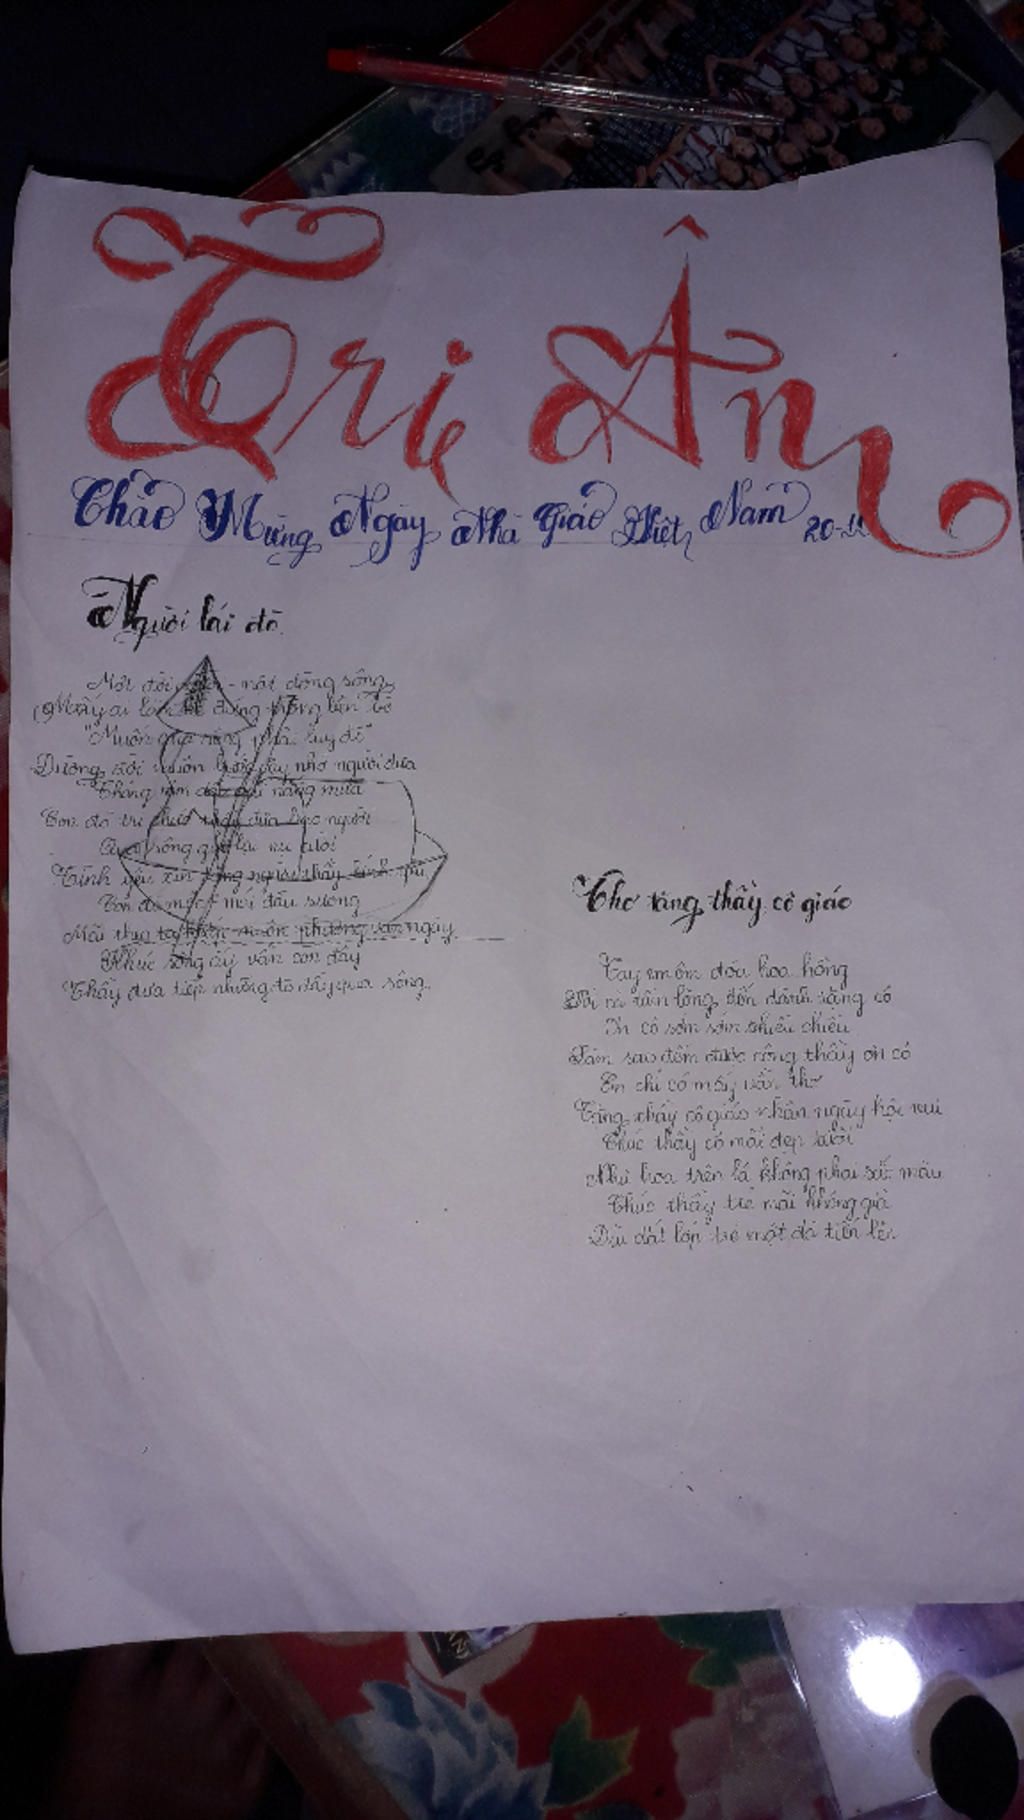 Tri Ân
Chào Mừng Ngày Nhà Giáo Việt Nam 20-11
Người lái đò
Một đời - một dòng sông
Mấy ai làm kẻ đứng trông bến bờ
"Muốn qua sông phải lụy đò"
Đường đời muôn bước cậy nhờ người đưa
Tháng năm dầu dãi nắng mưa
Con đò tri thức thầy đưa bao người
Qua sông gửi lại nụ cười
Tình yêu xin tặng người thầy kính yêu
Con đò mộc - mái đầu sương
Mãi theo ta khắp muôn phương vạn ngày
Khúc sông ấy vẫn còn đây
Thầy đưa tiếp những đò đầy qua sông.
Thơ tặng thầy cô giáo
Tay em ôm đóa hoa hồng
Tôi cả tấm lòng đến dành tặng cô
Ơn cô sớm sớm chiều chiều
Làm sao đếm được công thầy ơn cô
Em chỉ có mấy vần thơ
Tặng thầy cô giáo nhân ngày hội vui
Chúc thầy cô mãi đẹp tươi
Như hoa trên lá không phai sắc màu
Chúc thầy trẻ mãi không già
Dìu dắt lớp trẻ một đà tiến lên